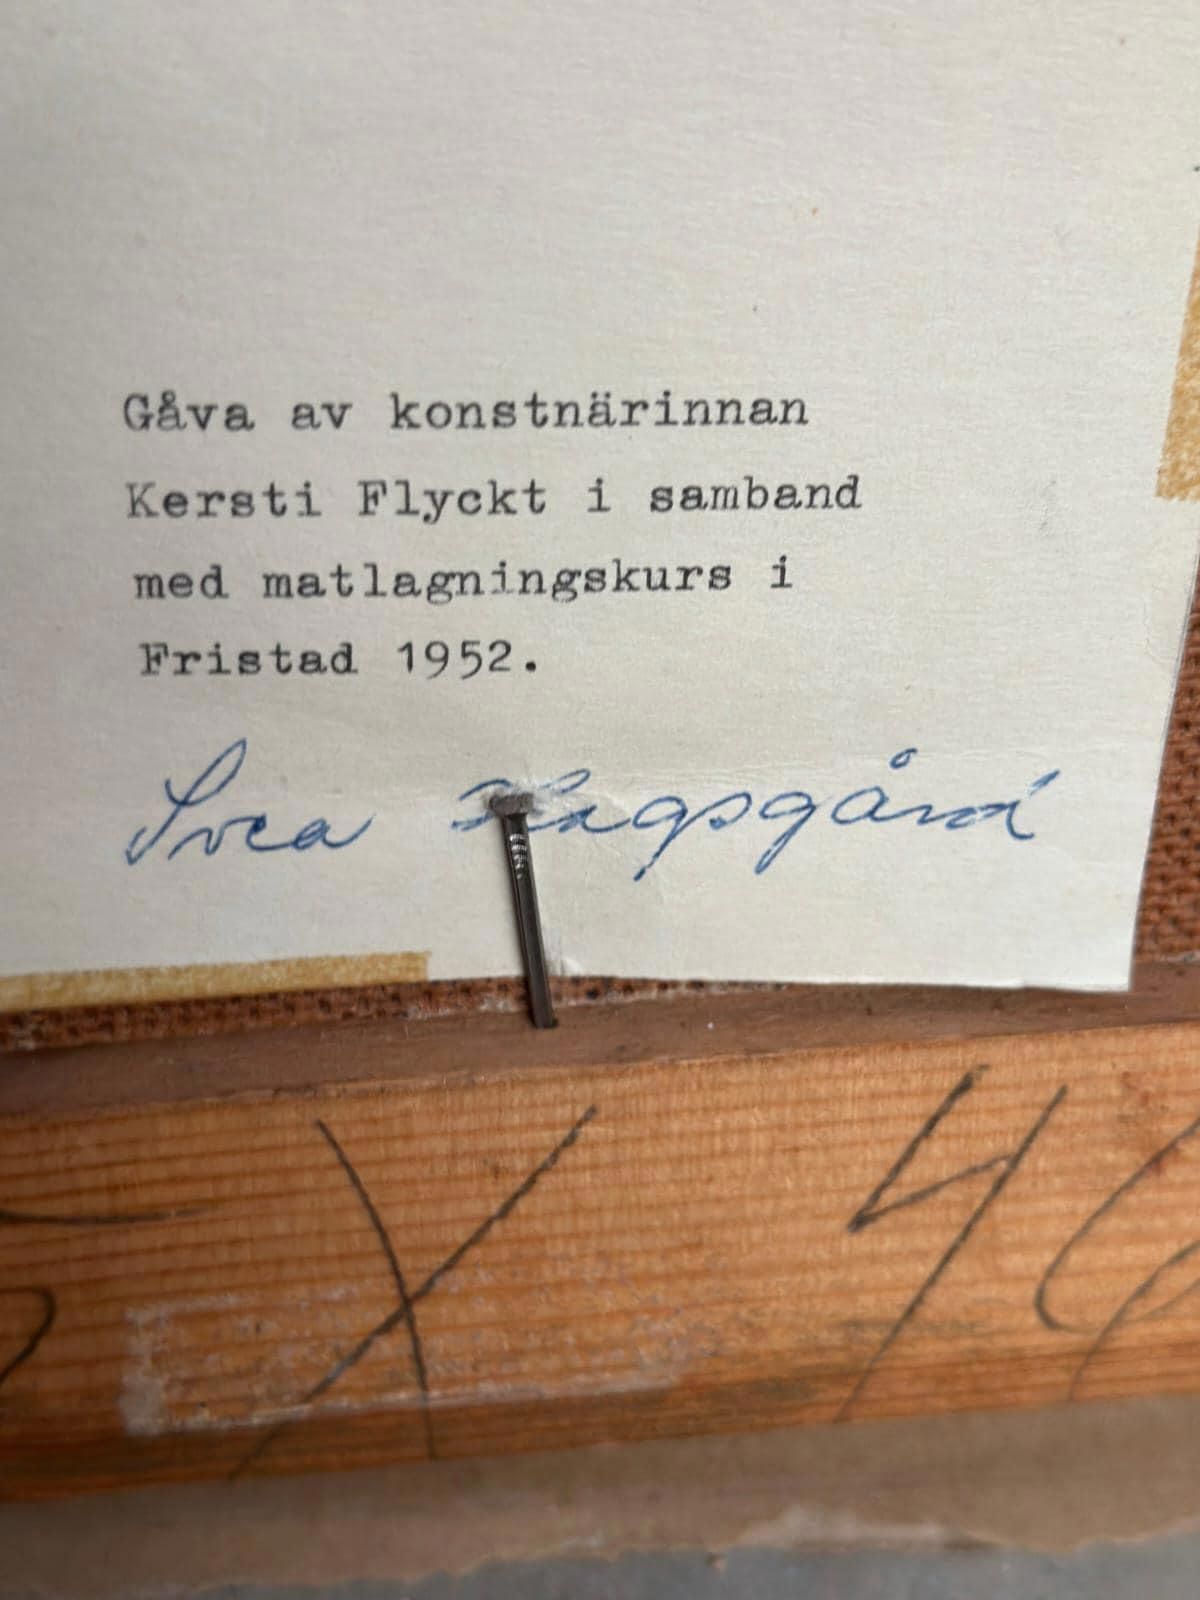 Gåva av konstnärinnan
Kersti Flyckt i samband
med matlagningskurs i
Fristad 1952.
Svea
X 46